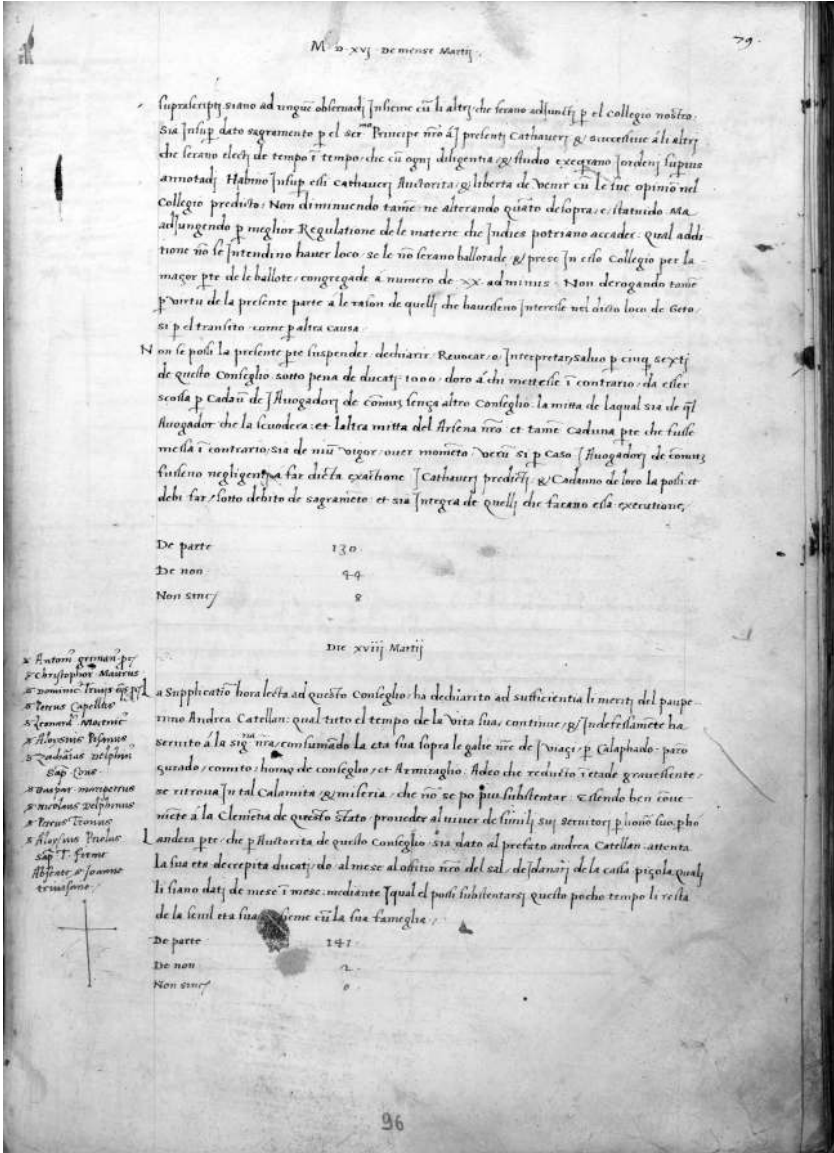 M D XVJ De mense Martij
79.
suprascriptj siano ad unguē obseruadj Insieme cū li altrj che serano adiunctj p̄ el collegio nostro.
Sia Insup̄ dato sagramento p̄ el ser.mo Principe nr̄o á J presenti Cathauerj &, successiue á li altrj
che serano electj de tempo ī tempo, che cū ogni diligentia, & studio exeqrano J ordenj supius
annotadj. Habino Insup̄ essi Cathauerj Auctorita, & liberta de Venir cū le sue opiniō nel
Collegio predicto, Non diminuendo tamē ne alterando quāto desopra, e, statuido. Ma
adJungendo p meghor Regulatione de le materie che Jndies potriano accader. qual addi
tione nō se Intendino hauer loco, se le nō serano ballotade, & prese In esso Collegio per la
maçor pte de le ballote, congregade á numero de XX. ad minus. Non derogando tamē
p̄ virtu de la presente parte a le rason de quellj che hauesseno Interesse nel dicto loco de Geto,
si p el transito, come p altra causa.
Non se possi la presente pte suspender, dechiarir, Reuocar, o, Interpretar, saluo p cinq, sextj
de questo Conseglio. sotto pena de ducatj 1000, doro á chi mettesse ī contrario, da esser
scossa p Cadaū de J Auogadorj de comū, senza altro Conseglio. la mitta de laqual sia de ql̄
Auogador che la scuodera: et laltra mitta del Arsena nr̄o. et tamē Caduna pte che fusse
messa ī contrario, sia de niū vigor, ouer momēto. Verū si p Caso J Auogadorj de comū
fusseno negligentj a far dicta exactione J Cathauerj predictj, & Cadauno de loro la possi, et
debi far, sotto debito de sagramēto. et sia Integra de quellj che farano essa executione,
De parte 130.
De non 44
Non sinc, 8
Die xviij Martij
s Antoni, griman, pr,
s Christophor, Maurus
s Dominic, Triuis, eqs pr,
s Petrus Capellus
s Leonard, Mocenic,
s Aloysius Pisanus
s Zacharias Delphin,
Sap. Cons.
s Gaspar, maripetrus
s Nicolaus Delphinus
s Petrus Tronus
s Aloysius Priolus
Sap. T. firme
Absente, s, Joanne
triuisano,
La Supplicatiō hora lecta ad questo Conseglio, ha dechiarito ad sufficientia li meriti del paupe
rimo Andrea Catellan: qual tuto el tempo de la Vita sua, continue, & Indefessamēte ha
seruito á la Sig.ria nr̄a, consumādo la eta sua sopra le galie nr̄e de J viaçi, p Calaphado, paro
zurado, comito, homo de conseglio, et Armiraglio. Adeo che reducto ī etade grauessente,
se ritroua In tal Calamita, & miseria, che nō se po piu substentar. Essendo ben cōue
niēte á la Clemētia de questo Stato, proueder al uiuer de simili suj seruitorj p honor suo, pho
Landera pte, che p Auctorita de questo Conseglio, sia dato al prefato andrea Catellan. attenta
la sua eta decrepita ducatj do, al mese al offitio nr̄o del sal, de J danarj de la cassa piçola, qualj
li siano datj de mese ī mese. mediante J qual el possi substentarsi questo pocho tempo li resta
de la senil eta sua Insieme cū la sua fameglia,
De parte 141
De non 2
Non sinc, 0
96